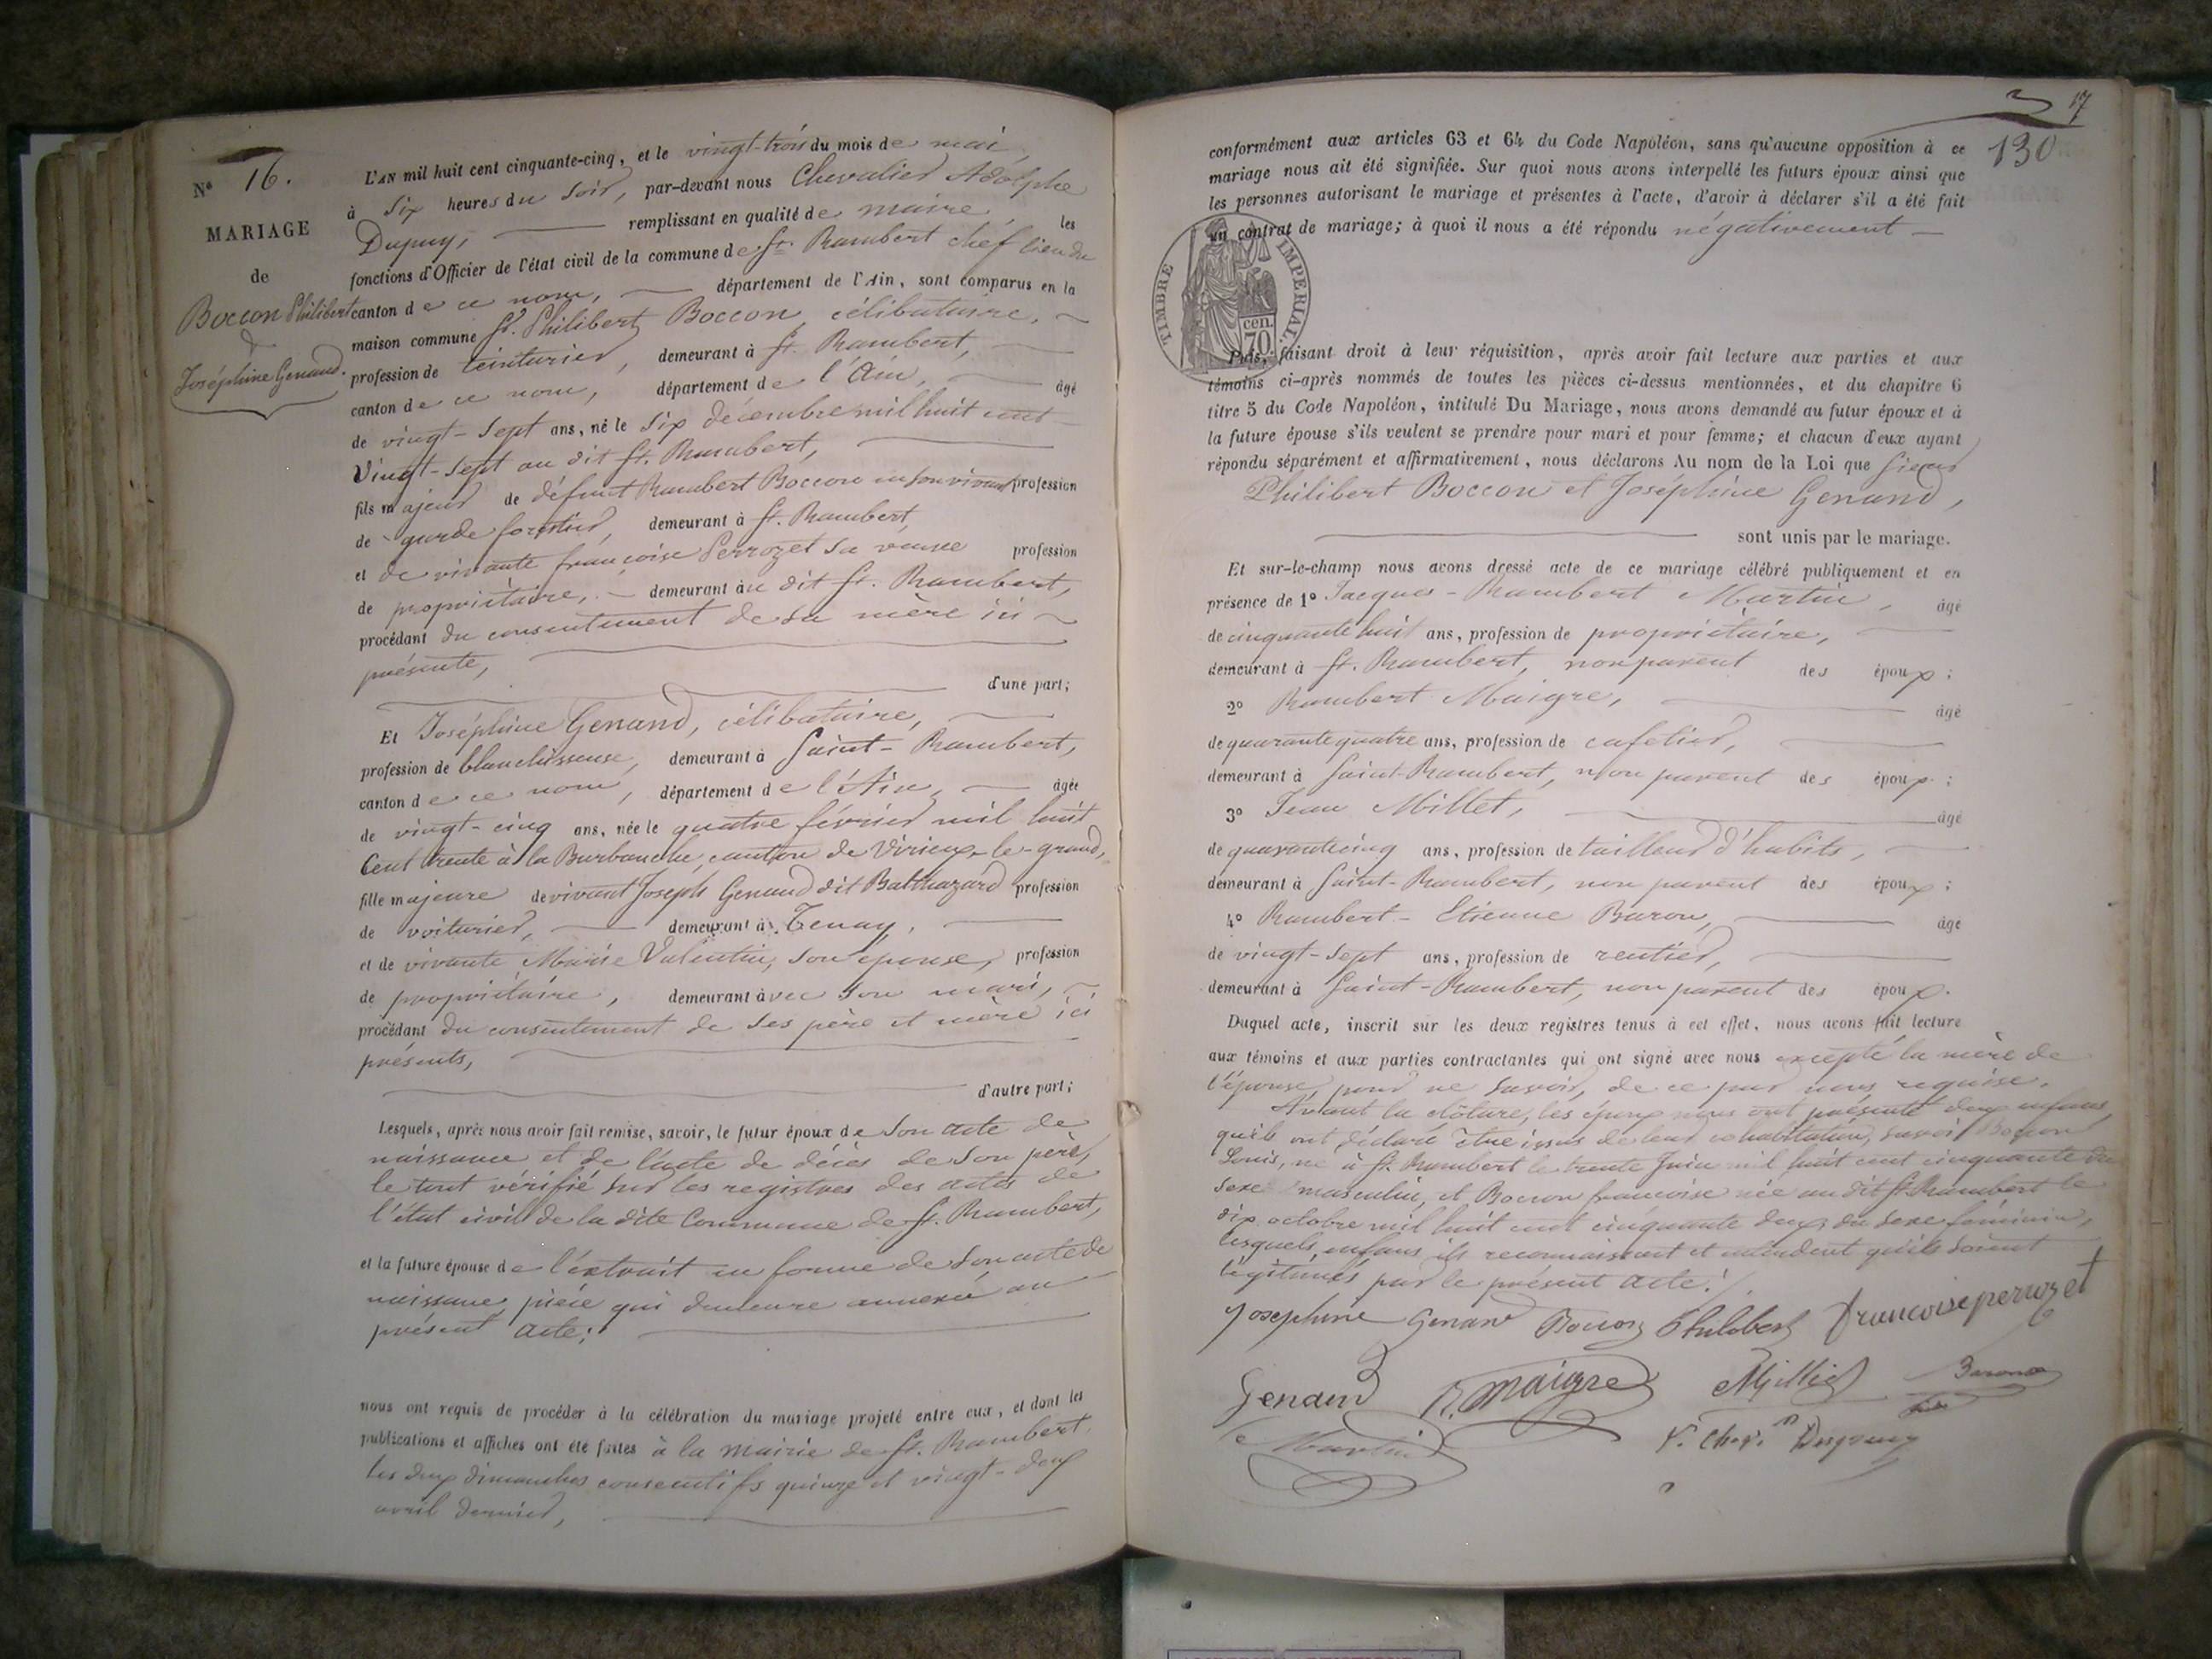 N° 16.
MARIAGE
de
Boccon Philibert
&
Joséphine Genand.
L'AN mil huit cent cinquante-cinq, et le vingt-trois du mois de mai,
à six heures du soir, par-devant nous Chevalier Adolphe
Dupuy, remplissant en qualité de maire, les
fonctions d'Officier de l'état civil de la commune de St. Rambert chef lieu du
canton de ce nom, département de l'Ain, sont comparus en la
maison commune Sr. Philibert Boccon, célibataire,
profession de teinturier, demeurant à St. Rambert,
canton de ce nom, département de l'Ain, âgé
de vingt-sept ans, né le six décembre mil huit cent
vingt-sept au dit St. Rambert,
fils majeur de défunt Rambert Boccon en son vivant profession
de garde forestier, demeurant à St. Rambert,
et de vivante françoise Perrozet sa veuve profession
de propriétaire, demeurant au dit St. Rambert,
procédant du consentement de sa mère ici
présente,
d'une part;
Et Joséphine Genand, célibataire,
profession de blanchisseuse, demeurant à Saint-Rambert,
canton de ce nom, département de l'Ain, âgée
de vingt-cinq ans, née le quatre février mil huit
cent trente à la Burbanche, canton de Virieux-le-grand,
fille majeure de vivant Joseph Genand dit Balthazard profession
de voiturier, demeurant à Tenay,
et de vivante Marie Valentin, son épouse, profession
de propriétaire, demeurant avec son mari,
procédant du consentement de ses père et mère ici
présents,
d'autre part;
Lesquels, après nous avoir fait remise, savoir, le futur époux de son acte de
naissance et de l'acte de décès de son père,
le tout vérifié sur les registres des actes de
l'état civil de la dite Commune de St. Rambert,
et la future épouse de l'extrait en forme de son acte de
naissance, pièce qui demeure annexée au
présent acte;
nous ont requis de procéder à la célébration du mariage projeté entre eux, et dont les
publications et affiches ont été faites à la mairie de St. Rambert
les deux dimanches consecutifs quinze et vingt-deux
avril dernier,
17
130
conformément aux articles 63 et 64 du Code Napoléon, sans qu'aucune opposition à ce
mariage nous ait été signifiée. Sur quoi nous avons interpellé les futurs époux ainsi que
les personnes autorisant le mariage et présentes à l'acte, d'avoir à déclarer s'il a été fait
un contrat de mariage; à quoi il nous a été répondu négativement
TIMBRE IMPERIAL.
70 cen.
Puis, faisant droit à leur réquisition, après avoir fait lecture aux parties et aux
témoins ci-après nommés de toutes les pièces ci-dessus mentionnées, et du chapitre 6
titre 5 du Code Napoléon, intitulé Du Mariage, nous avons demandé au futur époux et à
la future épouse s'ils veulent se prendre pour mari et pour femme; et chacun d'eux ayant
répondu séparément et affirmativement, nous déclarons Au nom de la Loi que sieur
Philibert Boccon et Joséphine Genand,
sont unis par le mariage.
Et sur-le-champ nous avons dressé acte de ce mariage célébré publiquement et en
présence de 1° Jacques-Rambert Martin, âgé
de cinquante huit ans, profession de propriétaire,
demeurant à St. Rambert, non parent des époux;
2° Rambert Maigre, âgé
de quarante quatre ans, profession de cafetier,
demeurant à Saint-Rambert, non parent des époux;
3° Jean Millet, âgé
de quarante cinq ans, profession de tailleur d'habits,
demeurant à Saint-Rambert, non parent des époux;
4° Rambert-Etienne Baron, âgé
de vingt-sept ans, profession de rentier,
demeurant à Saint-Rambert, non parent des époux.
Duquel acte, inscrit sur les deux registres tenus à cet effet, nous avons fait lecture
aux témoins et aux parties contractantes qui ont signé avec nous excepté la mère de
l'épouse, pour ne savoir, de ce par nous requise.
Avant la clôture, les époux nous ont présenté deux enfans,
qu'ils ont déclaré être issus de leur cohabitation, savoir Boccon
Louis, né à St. Rambert le trente Juin mil huit cent cinquante du
sexe masculin, et Boccon françoise née au dit St. Rambert le
dix octobre mil huit cent cinquante deux, du sexe féminin,
lesquels enfans ils reconnaissent et entendent qu'ils soient
légitimés par le présent acte.
Josephine Genand Boccon Philibert francoise perrozet
Genand R. Maigre Millet Baron
Martin V. Cher. Dupuy